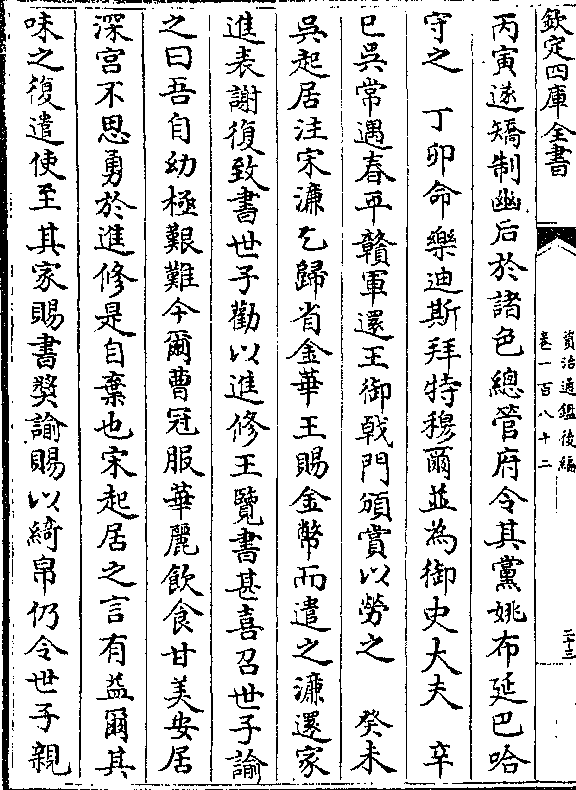 欽定四庫全書
資治通鑑後編
卷一百八十二
二十三
丙寅遂矯制幽后於諸色總管府令其黨姚布延巴哈
守之　丁卯命樂迪斯拜特穆爾並為御史大夫　辛
巳吳常遇春平贛軍還王御戟門頒賞以勞之　癸未
吳起居注宋濂乞歸省金華王賜金幣而遣之濂還家
進表謝復致書世子勸以進修王覽書甚喜召世子諭
之曰吾自幼極艱難今爾曹冠服華麗飲食甘美安居
深宮不思勇於進修是自棄也宋起居之言有益爾其
味之復遣使至其家賜書奬諭賜以綺帛仍令世子親